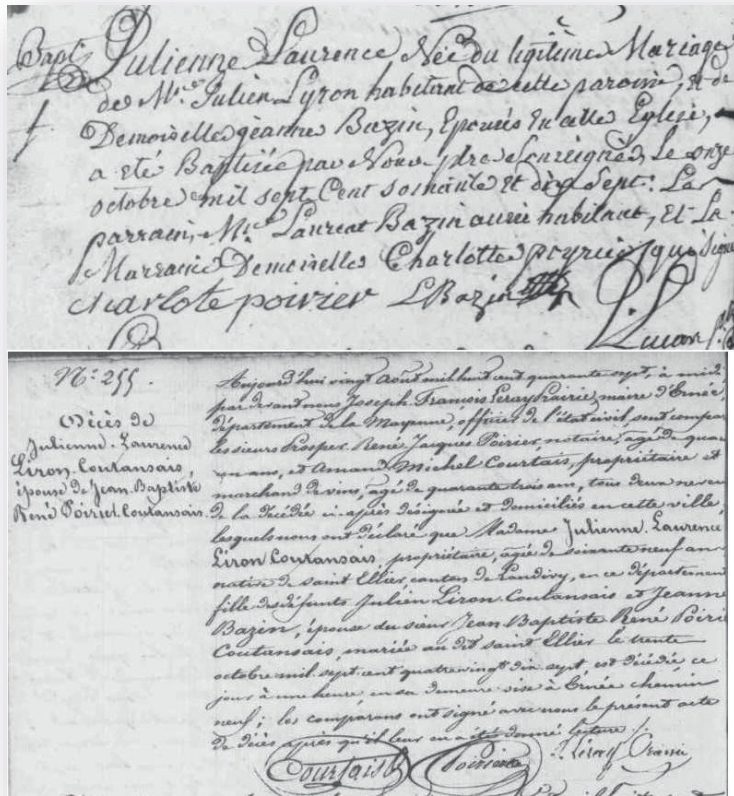 Bapt.
Julienne Laurence Née du légitime Mariage
de Mr. Julien Lyron habitant de cette paroisse, et de
Demoiselle jeanne Bazin, Epousés En cette Eglise,
a eté Baptisée par Nous ptre Sousigné, Le onze
octobre mil sept Cent soixante et dix Sept: Le
parrain, Mr. Laurent Bazin aussi habitant, Et La
Marraine Demoiselle Charlotte poyrier qui Signe
charlote poirier LBazin
N.° 255.
Décès de
Julienne Laurence
Liron Coutansais,
épouse de Jean Baptiste
René Poirier Coutansais.
Aujourd'hui vingt Août mil huit cent quarante sept, à midi
par devant nous Joseph François Leray Prairie, maire d'Ernée,
département de la Mayenne, officier de l'état civil, sont compa
les sieurs Prosper René Jacques Poirier, notaire, âgé de qua
un ans, et Amand Michel Courtais, propriétaire et
marchand de vins, âgé de quarante trois ans, tous deux neveu
de la décédée ci-après désignée et domiciliés en cette ville,
lesquels nous ont déclaré que Madame Julienne Laurence
Liron Coutansais, propriétaire, âgée de soixante neuf ans
native de saint Ellier, canton de Landivy, en ce département
fille des défunts Julien Liron Coutansais et Jeanne
Bazin, épouse du sieur Jean Baptiste René Poiri
Coutansais, mariée au dit saint Ellier le trente
octobre mil sept cent quatre vingt dix sept, est décédée ce
jour à une heure en sa demeure sise à Ernée chemin
neuf; les comparans ont signé avec nous le présent acte
de décès après qu'il leur en a été donné lecture.
Courtais Poirier Leray Prairie